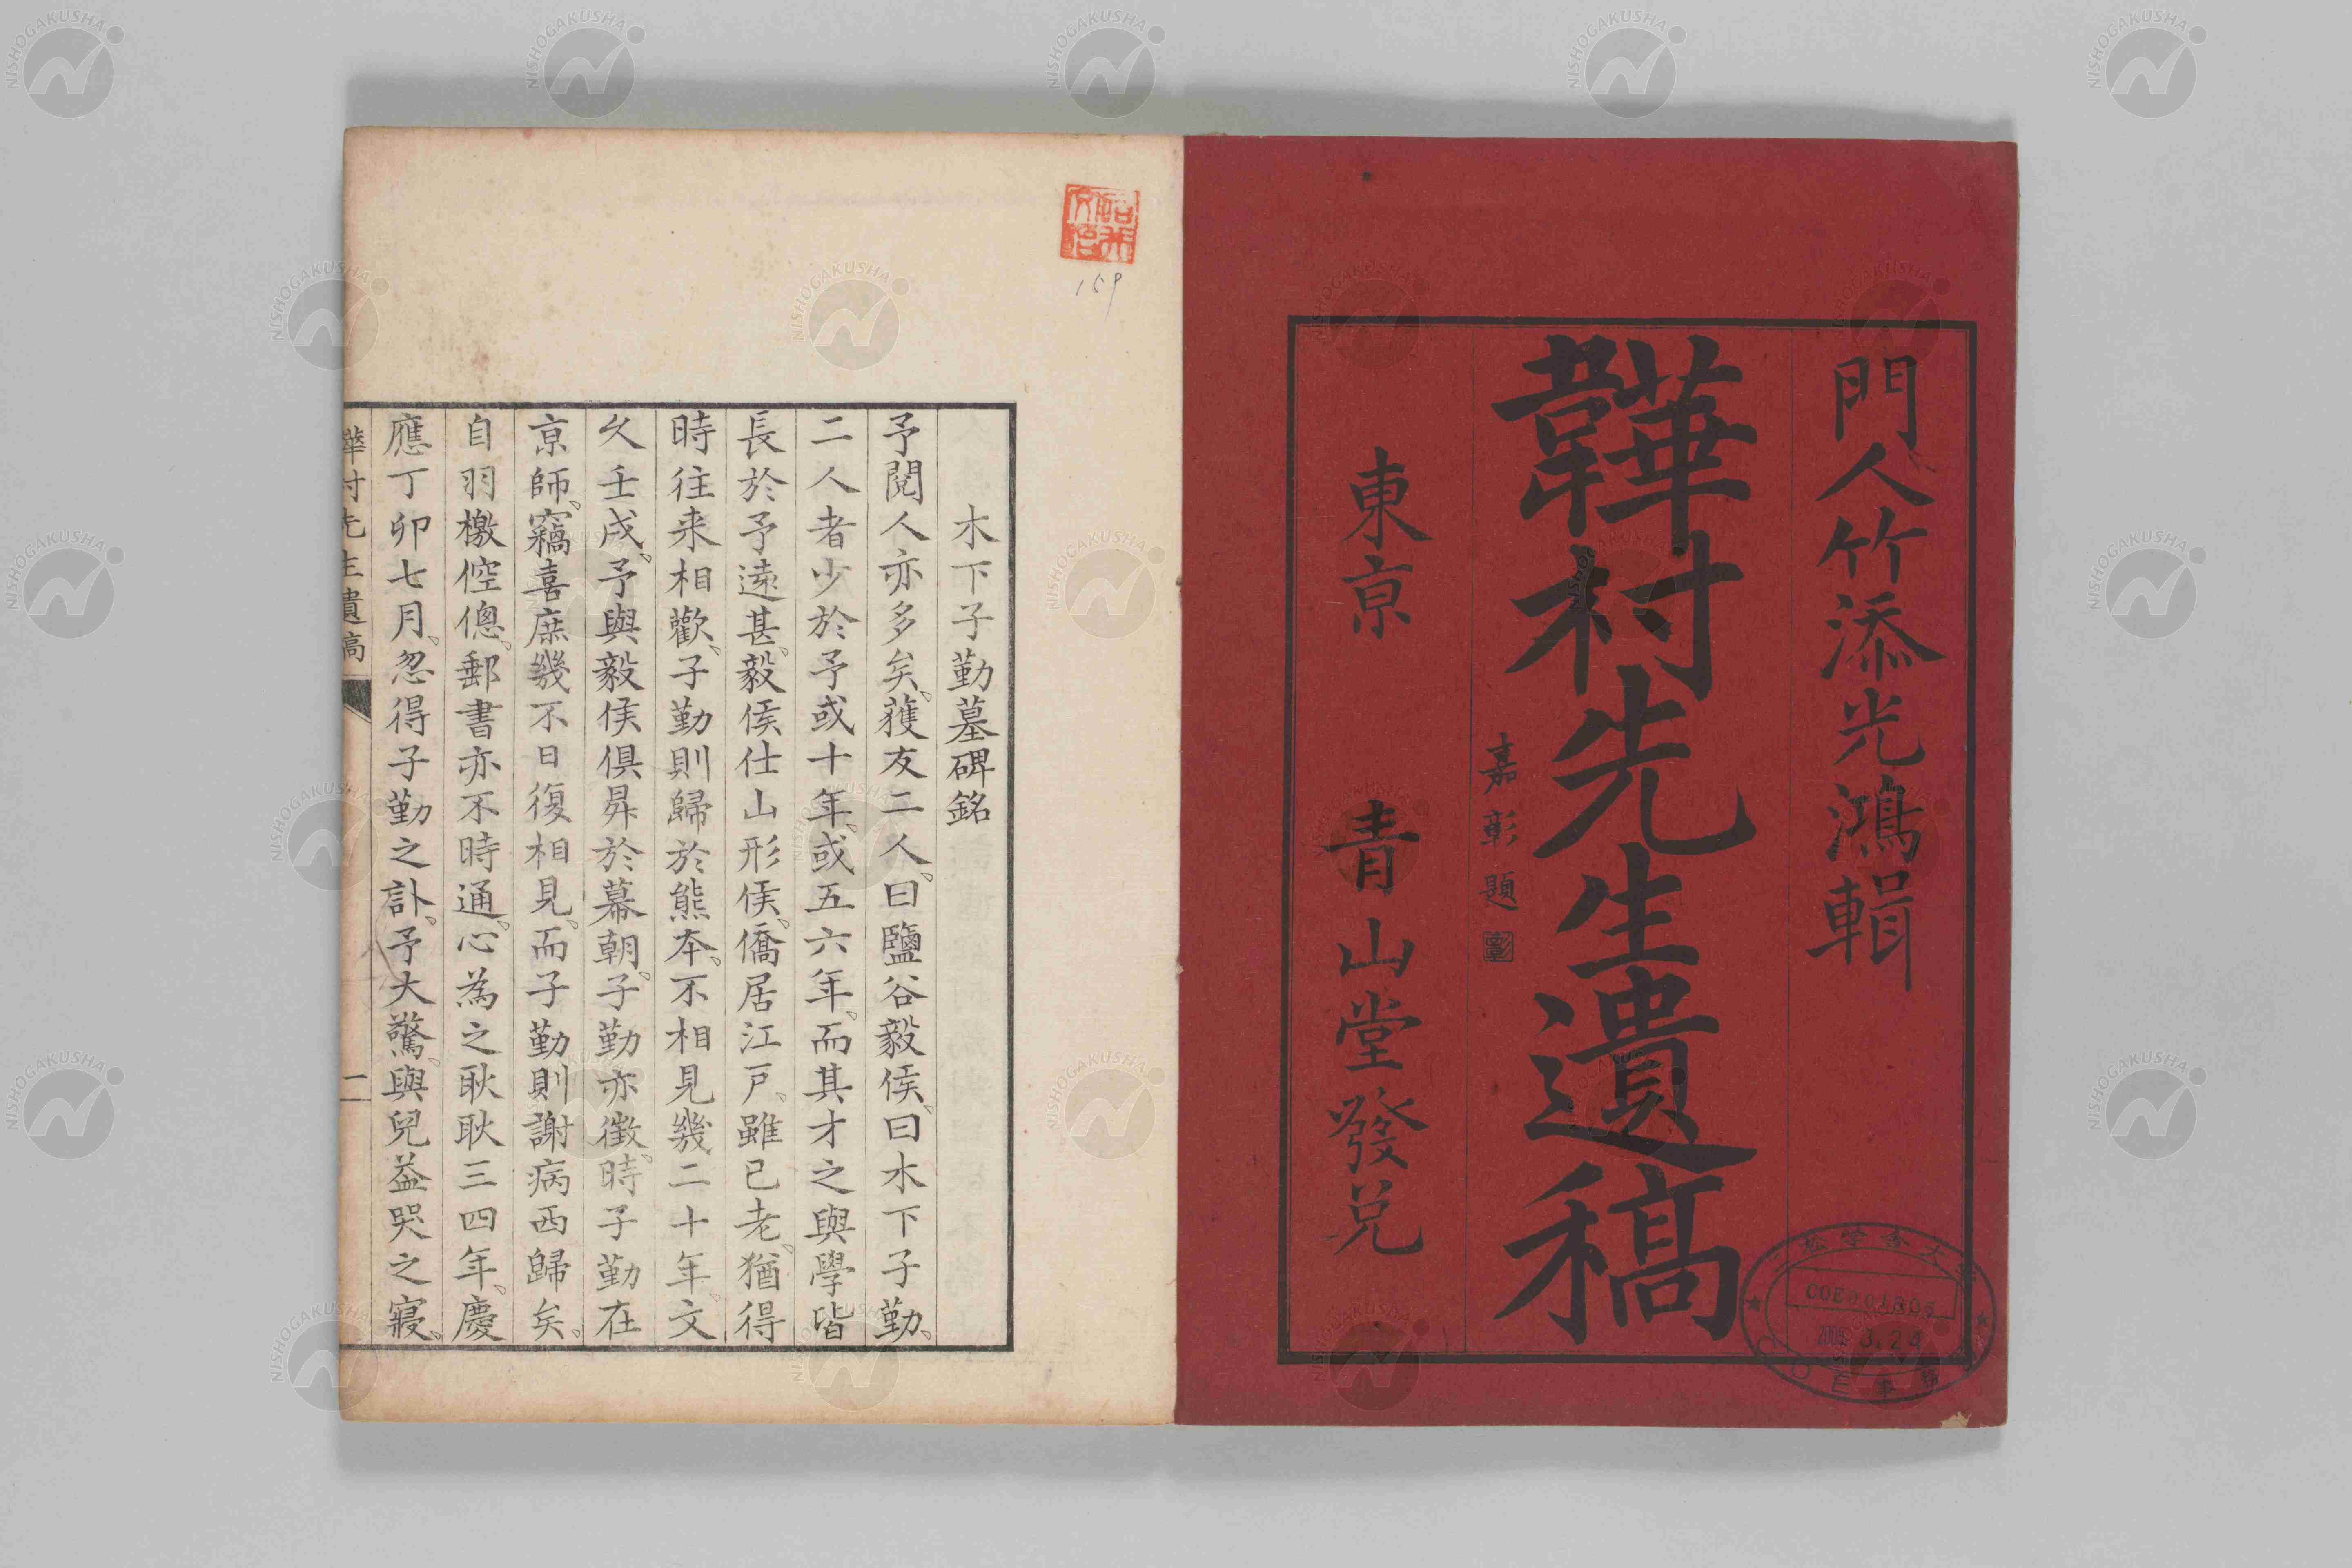 門人竹添光鴻輯
韡村先生遺稿
嘉彰題
東京 青山堂發兌
木下子勤墓碑銘
予閱人亦多矣。獲友二人。曰鹽谷毅侯。曰木下子勤。
二人者少於予或十年。或五六年。而其才之與學皆
長於予遠甚。毅侯仕山形侯。僑居江戸。雖已老。猶得
時往来相歡。子勤則歸於熊本。不相見幾二十年。文
久壬戌。予與毅侯俱昇於幕朝。子勤亦徴。時子勤在
京師。竊喜庶幾不日復相見。而子勤則謝病西歸矣。
自羽檄倥傯。郵書亦不時通。心為之耿耿三四年。慶
應丁卯七月。忽得子勤之訃。予大驚。與兒益哭之寢。
韡村先生遺稿 一
159
COE
3.24
NISHOGAKUSHA